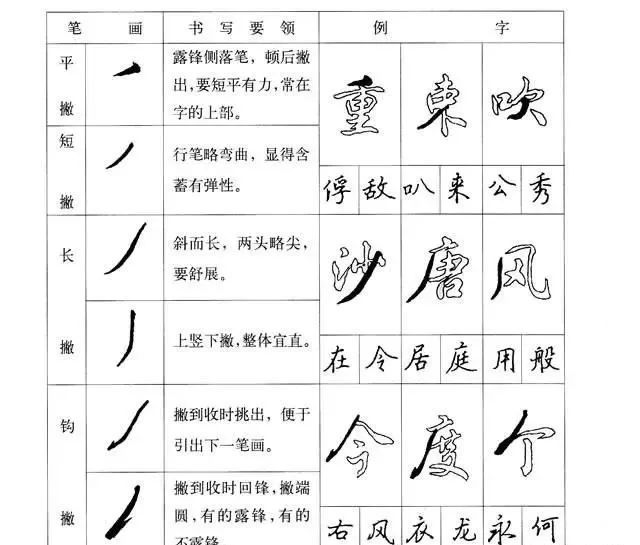 笔 画 书写要领 例 字
平撇
露锋侧落笔，顿后撇
出，要短平有力，常在
字的上部。
重 束 吹
短撇
行笔略弯曲，显得含
蓄有弹性。
俘 敌 叭 来 公 秀
长撇
斜而长，两头略尖，
要舒展。
沙 唐 风
上竖下撇，整体宜直。
在 令 居 庭 用 般
钩撇
撇到收时挑出，便于
引出下一笔画。
今 度 个
撇到收时回锋，撇端
圆，有的露锋，有的
不露锋。
右 风 衣 龙 永 何